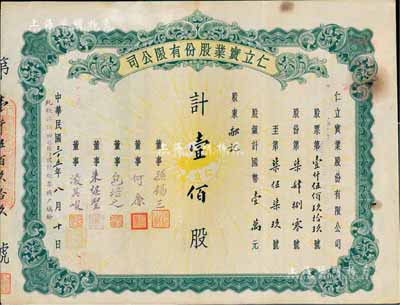 仁立實業股份有限公司
仁立實業股份有限公司
股票第壹仟伍佰玖拾玖號
第柒肆捌零號
至第柒伍柒玖號
股銀計國幣壹萬元
股東
計壹佰股
董事孫錫三
董事何廉
董事包培之
董事朱繼聖
董事凌其峻
中華民國三十五年八月十日
第壹仟伍佰玖拾玖號